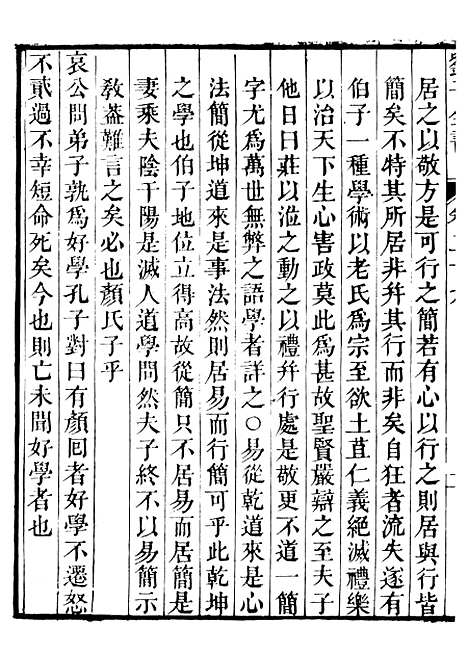 居之以敬方是可行之簡若有心以行之則居與行皆
簡矣不特其所居非幷其行而非矣自狂者流失遂有
伯子一種學術以老氏爲宗至欲土苴仁義絕滅禮樂
以治天下生心害政莫此爲甚故聖賢嚴辯之至夫子
他日曰莊以涖之動之以禮幷行處是敬更不道一簡
字尤爲萬世無弊之語學者詳之○易從乾道來是心
法簡從坤道來是事法然則居易而行簡可乎此乾坤
之學也伯子地位立得高故從簡只不居易而居簡是
妻乘夫陰干陽是滅人道學問然夫子終不以易簡示
敎葢難言之矣必也顏氏子乎
哀公問弟子孰爲好學孔子對曰有顏囘者好學不遷怒
不貳過不幸短命死矣今也則亡未聞好學者也